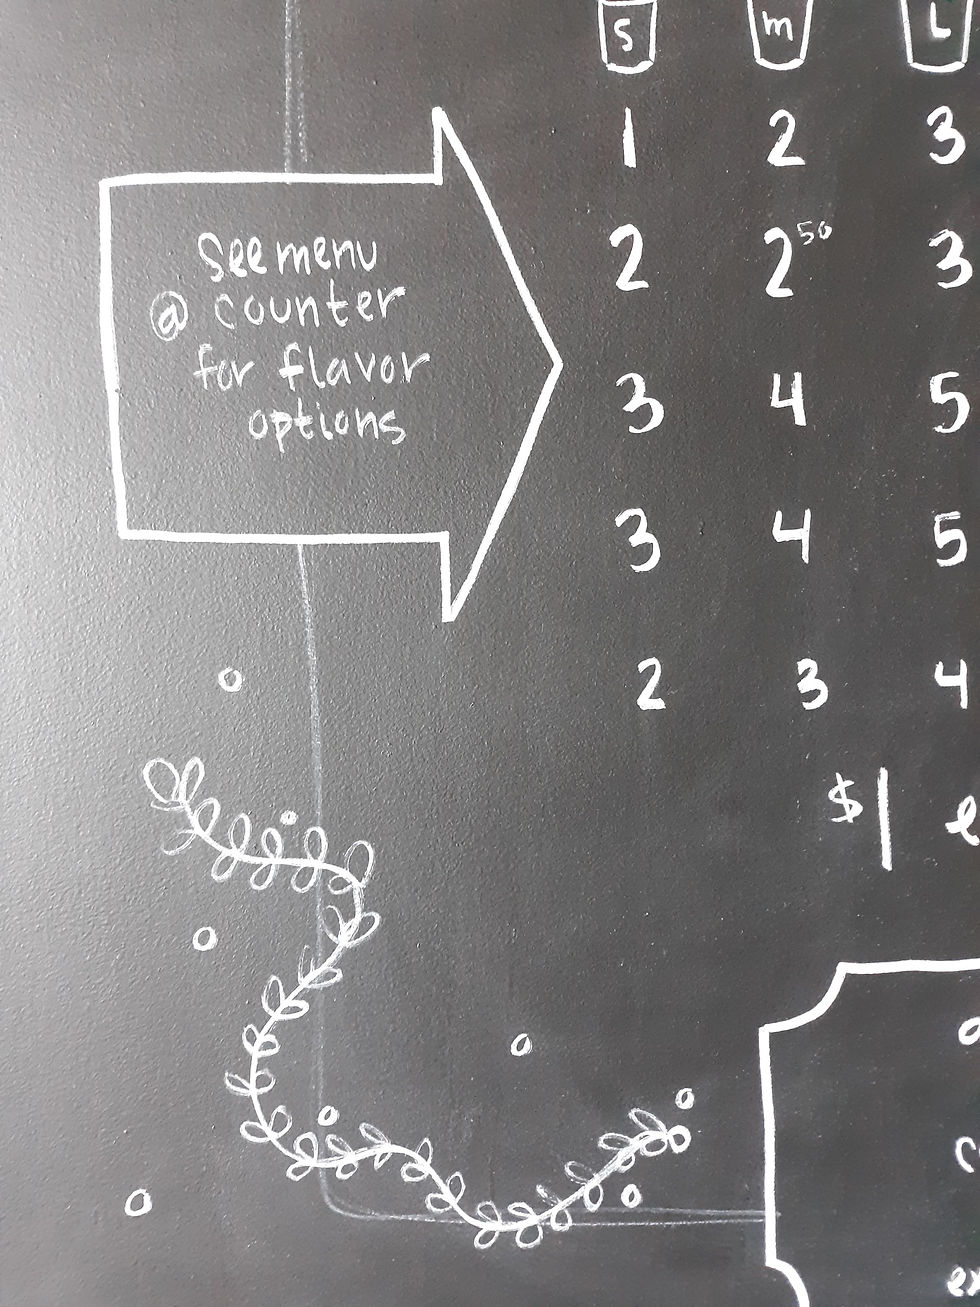 S m L
1 2 3
2 2⁵⁰ 3
3 4 5
3 4 5
2 3 4
$1
See menu
@ counter
for flavor
options